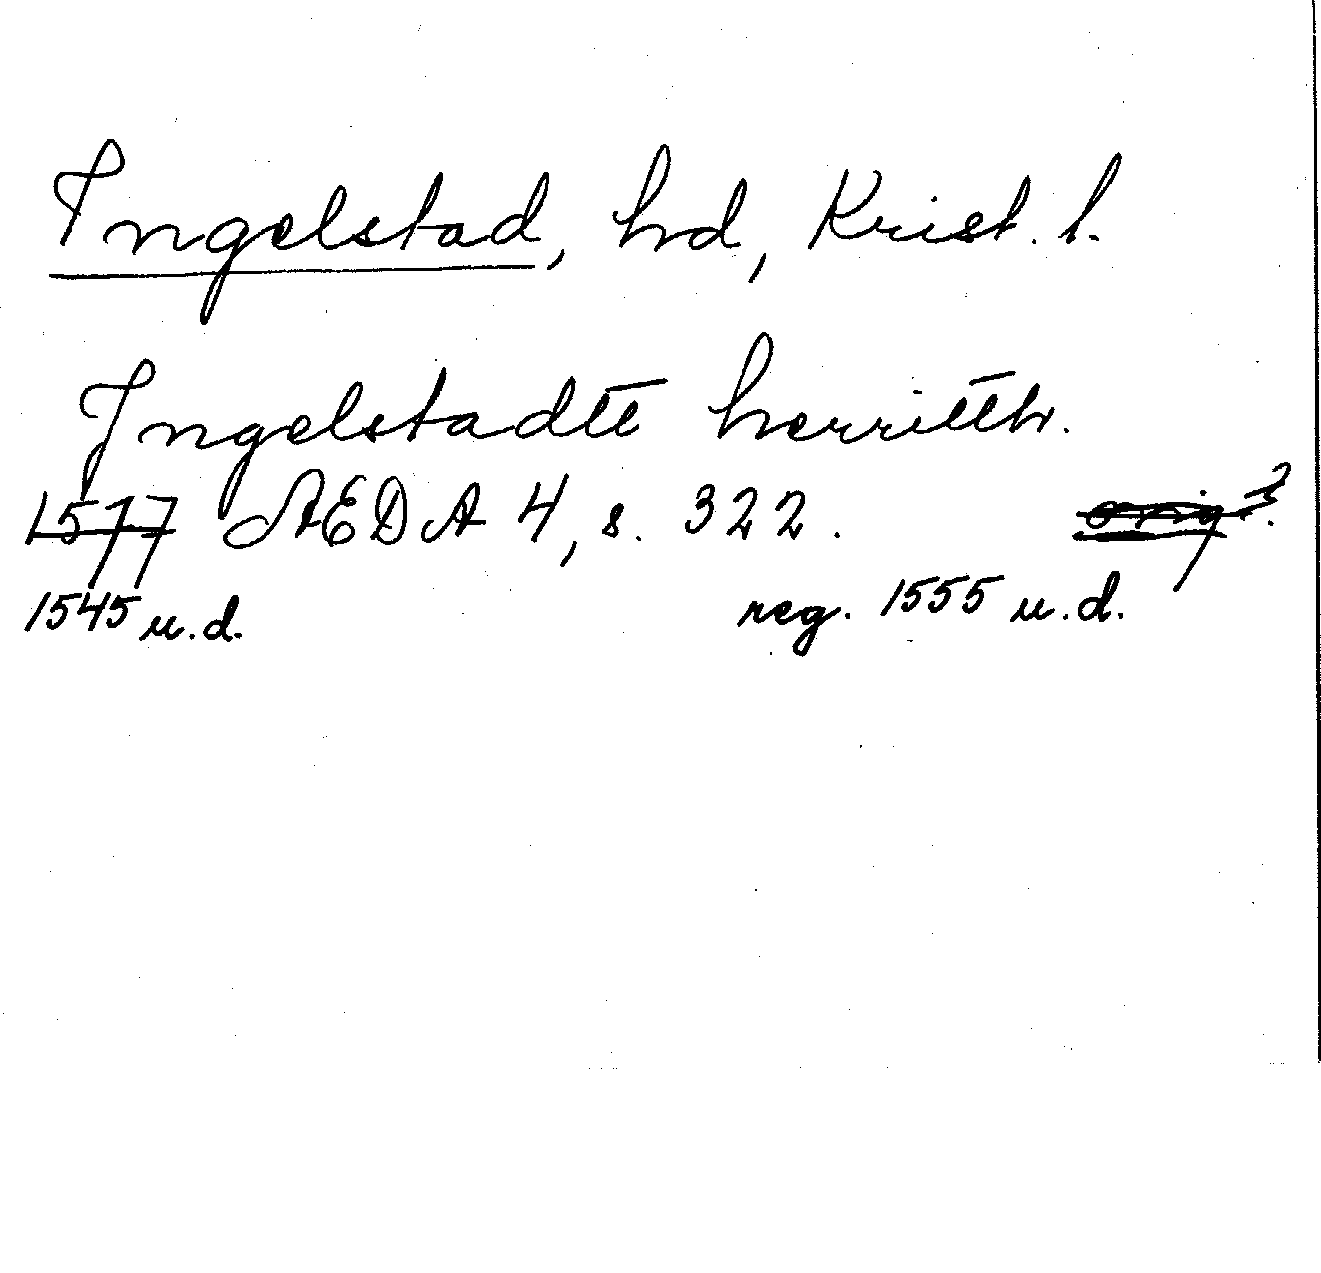 Ingelstad, hd, Krist. l.
Ingelstadtt herritth.
1577 AEDA 4, s. 322. orig.?
1545 u.d. reg. 1555 u.d.